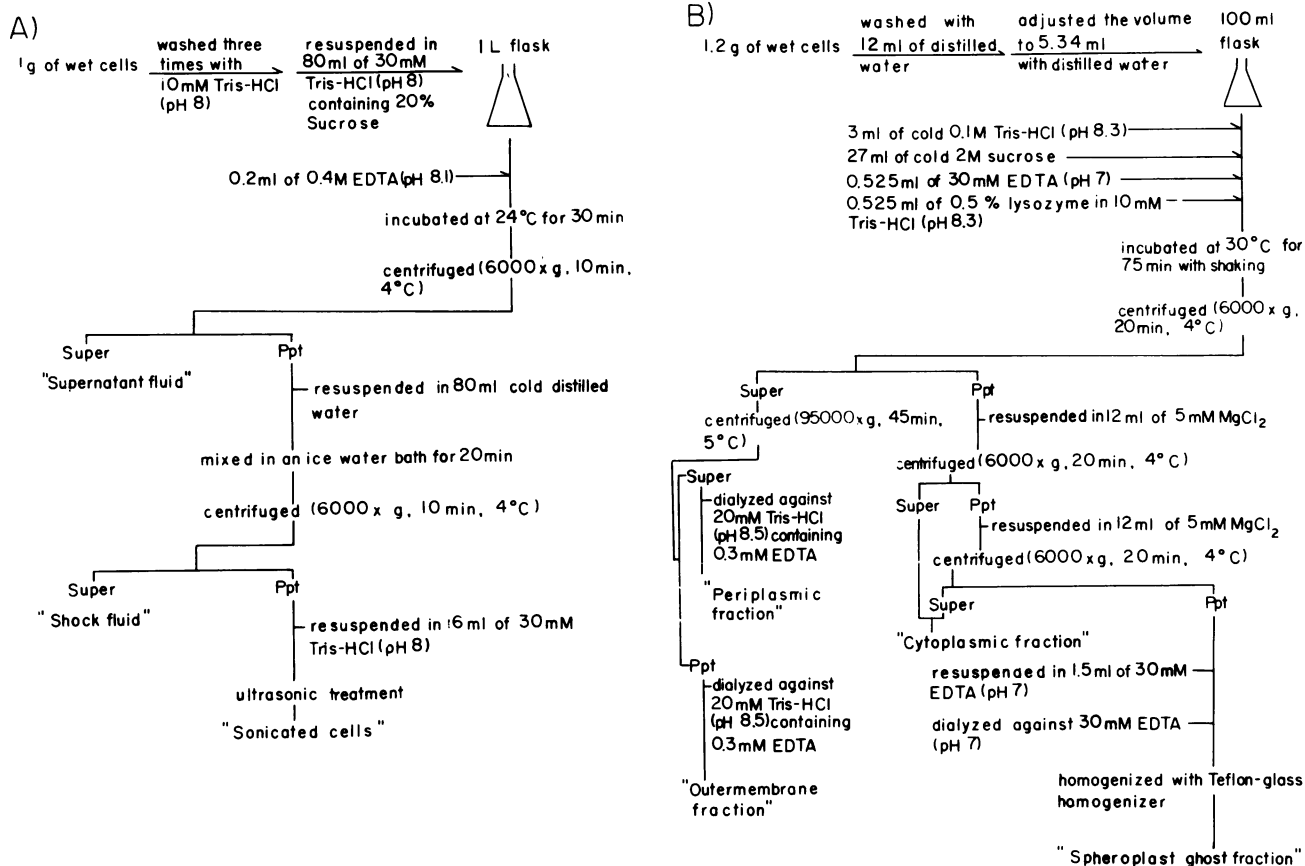 A)
1g of wet cells
washed three
times with
10mM Tris-HCl
(pH 8)
resuspended in
80ml of 30mM
Tris-HCl (pH 8)
containing 20%
Sucrose
1 L flask
0.2ml of 0.4M EDTA(pH 8.1)
incubated at 24°C for 30 min
centrifuged (6000 x g, 10 min,
4°C)
Super
"Supernatant fluid"
Ppt
resuspended in 80ml cold distilled
water
mixed in an ice water bath for 20min
centrifuged (6000 x g, 10 min, 4°C)
Super
"Shock fluid"
Ppt
resuspended in 16ml of 30mM
Tris-HCl (pH 8)
ultrasonic treatment
"Sonicated cells"
B)
1.2 g of wet cells
washed with
12 ml of distilled
water
adjusted the volume
to 5.34 ml
with distilled water
100 ml
flask
3 ml of cold 0.1M Tris-HCl (pH 8.3)
27ml of cold 2M sucrose
0.525ml of 30mM EDTA (pH 7)
0.525 ml of 0.5 % lysozyme in 10mM
Tris-HCl (pH 8.3)
incubated at 30°C for
75min with shaking
centrifuged (6000 x g,
20min, 4°C)
Super
centrifuged (95000 x g, 45min,
5°C)
Super
dialyzed against
20mM Tris-HCl
(pH 8.5) containing
0.3mM EDTA
"Periplasmic
fraction"
Ppt
dialyzed against
20mM Tris-HCl
(pH 8.5) containing
0.3mM EDTA
"Outermembrane
fraction"
Ppt
resuspended in 12 ml of 5mM MgCl2
centrifuged (6000 x g, 20 min, 4°C)
Super
Ppt
resuspended in 12ml of 5mM MgCl2
centrifuged (6000 x g, 20 min, 4°C)
Super
"Cytoplasmic fraction"
Ppt
resuspended in 1.5ml of 30mM
EDTA (pH 7)
dialyzed against 30mM EDTA
(pH 7)
homogenized with Teflon-glass
homogenizer
"Spheroplast ghost fraction"